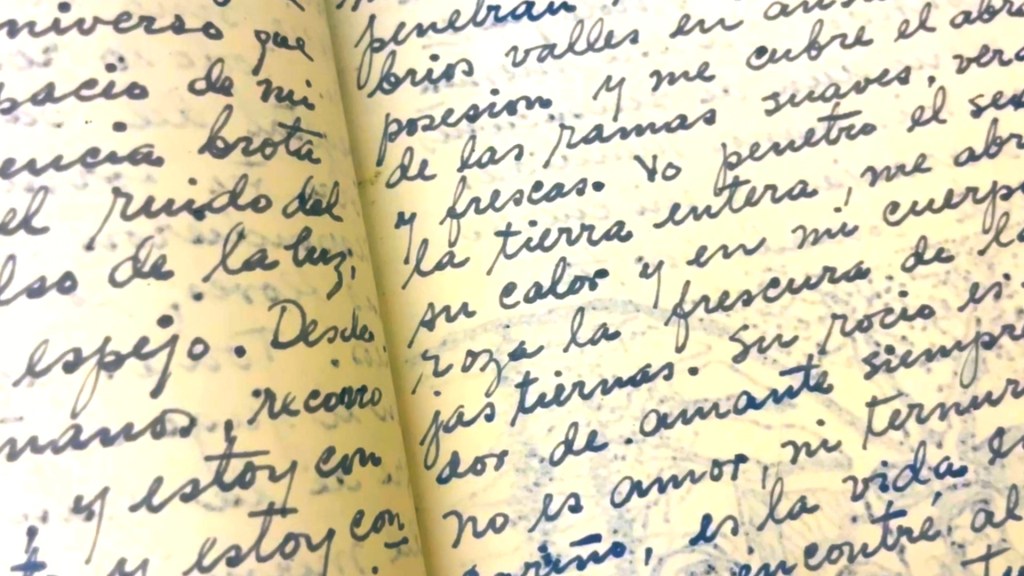 universo que
pacio de mi
encia brota
el ruido del
lso de la luz,
espejo. Desde
manos, recorro
y estoy con
y estoy con
penetran
brios valles en
posesion y me cubre el abra
de las ramas suaves, verd
y frescas. Yo penetro el sex
la tierra entera, me abr
su calor y en mi cuerpo
roza la frescura de la
jas tiernas. Su rocio es
dor de amante siempre
no es amor, ni ternur
ariño, es la vida e
encontré al